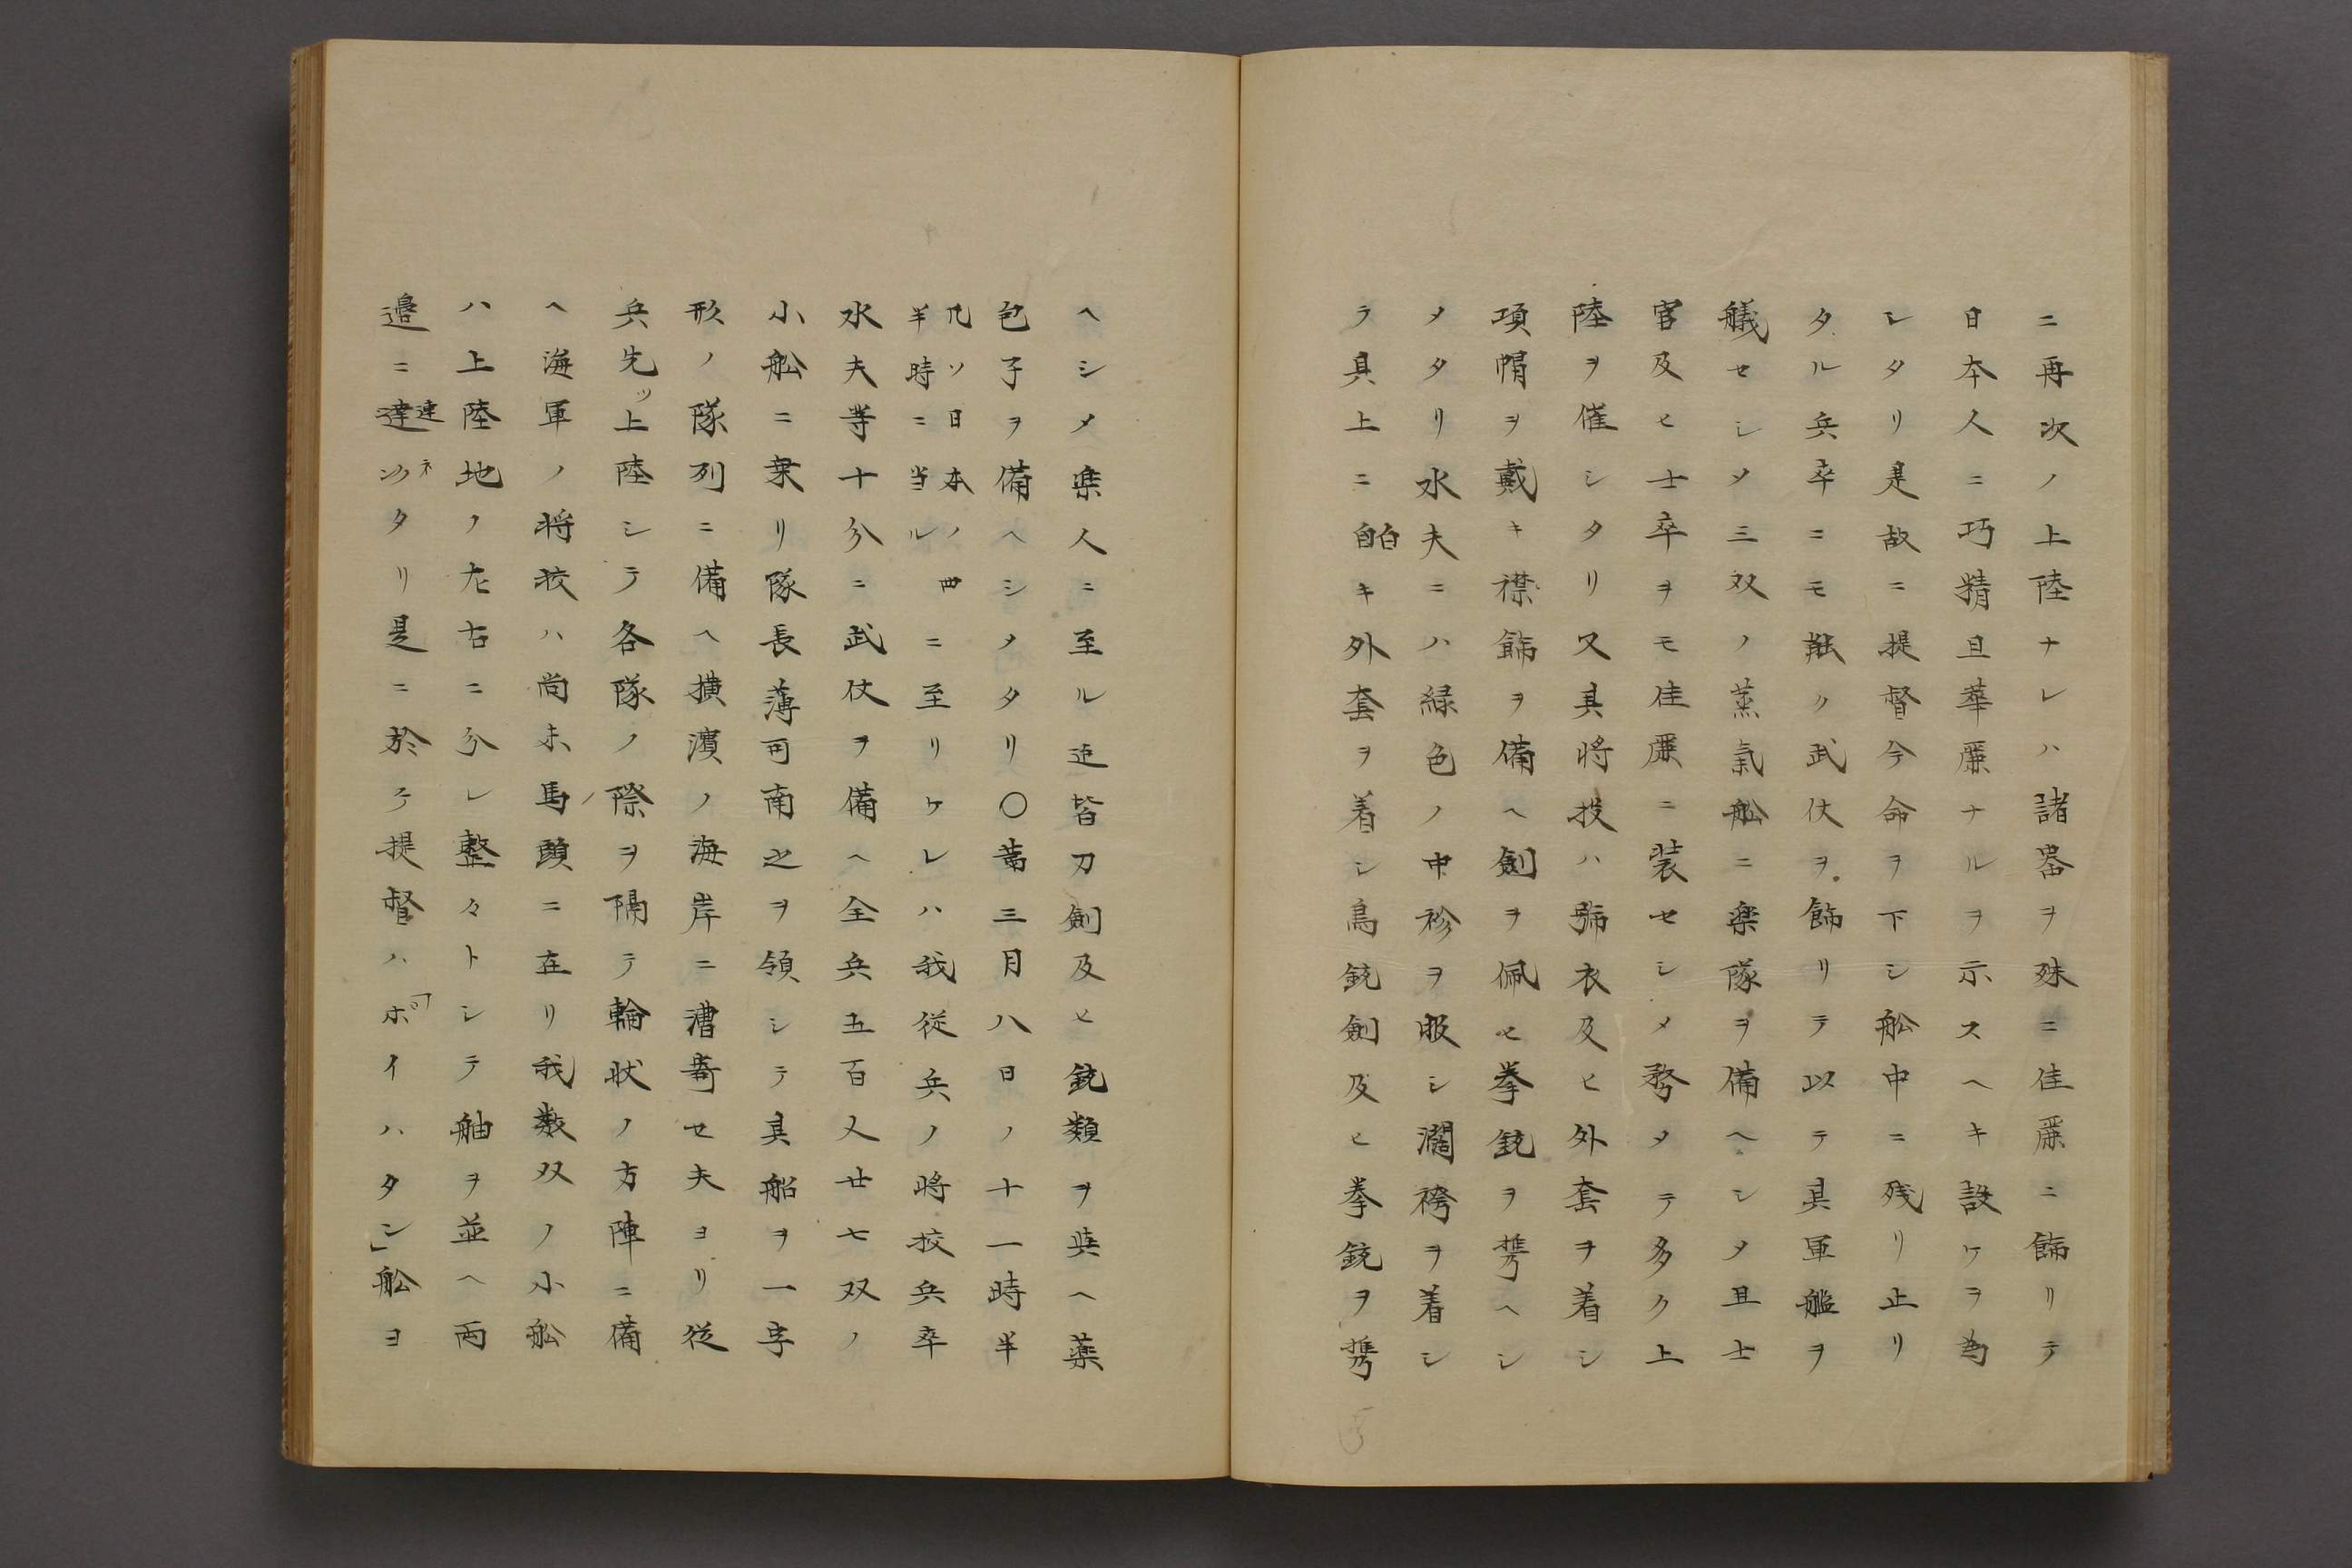 ニ再次ノ上陸ナレハ諸器ヲ殊ニ佳麗ニ餙リテ
日本人ニ巧精且華麗ナルヲ示スヘキ設ケヲ為
シタリ是故ニ提督今命ヲ下シ舩中ニ残リ止リ
タル兵卒ニモ能ク武仗ヲ餙リテ以テ其軍艦ヲ
艤セシメ三双ノ蒸氣舩ニ楽隊ヲ備ヘシメ且士
官及ヒ士卒ヲモ佳麗ニ装セシメ務メテ多ク上
陸ヲ催シタリ又其将校ハ號衣及ヒ外套ヲ着シ
項帽ヲ戴キ襟餙ヲ備ヘ劍ヲ佩ヒ拳銃ヲ携ヘシ
メタリ水夫ニハ緑色ノ中衫ヲ服シ濶袴ヲ着シ
テ其上ニ白キ外套ヲ着シ鳥銃劍及ヒ拳銃ヲ携
ヘシメ楽人ニ至ル迄皆刀劍及ヒ銃類ヲ與ヘ薬
包子ヲ備ヘシメタリ〇第三月八日ノ十一時半
凡ソ日本ノ四
半時ニ当ルニ至リケレハ我従兵ノ将校兵卒
水夫等十分ニ武仗ヲ備ヘ全兵五百人廿七双ノ
小舩ニ乗リ隊長薄可南之ヲ領シテ其船ヲ一字
形ノ隊列ニ備ヘ横濱ノ海岸ニ漕寄セ夫ヨリ従
兵先ッ上陸シテ各隊ノ際ヲ隔テ輪状ノ方陣ニ備
ヘ海軍ノ将校ハ尚未馬頭ニ在リ我数双ノ小舩
ハ上陸地ノ左右ニ分レ整々トシテ舳ヲ並ヘ両
邉ニ連ネタリ是ニ於テ提督ハ「ポイハタン」舩ヨ